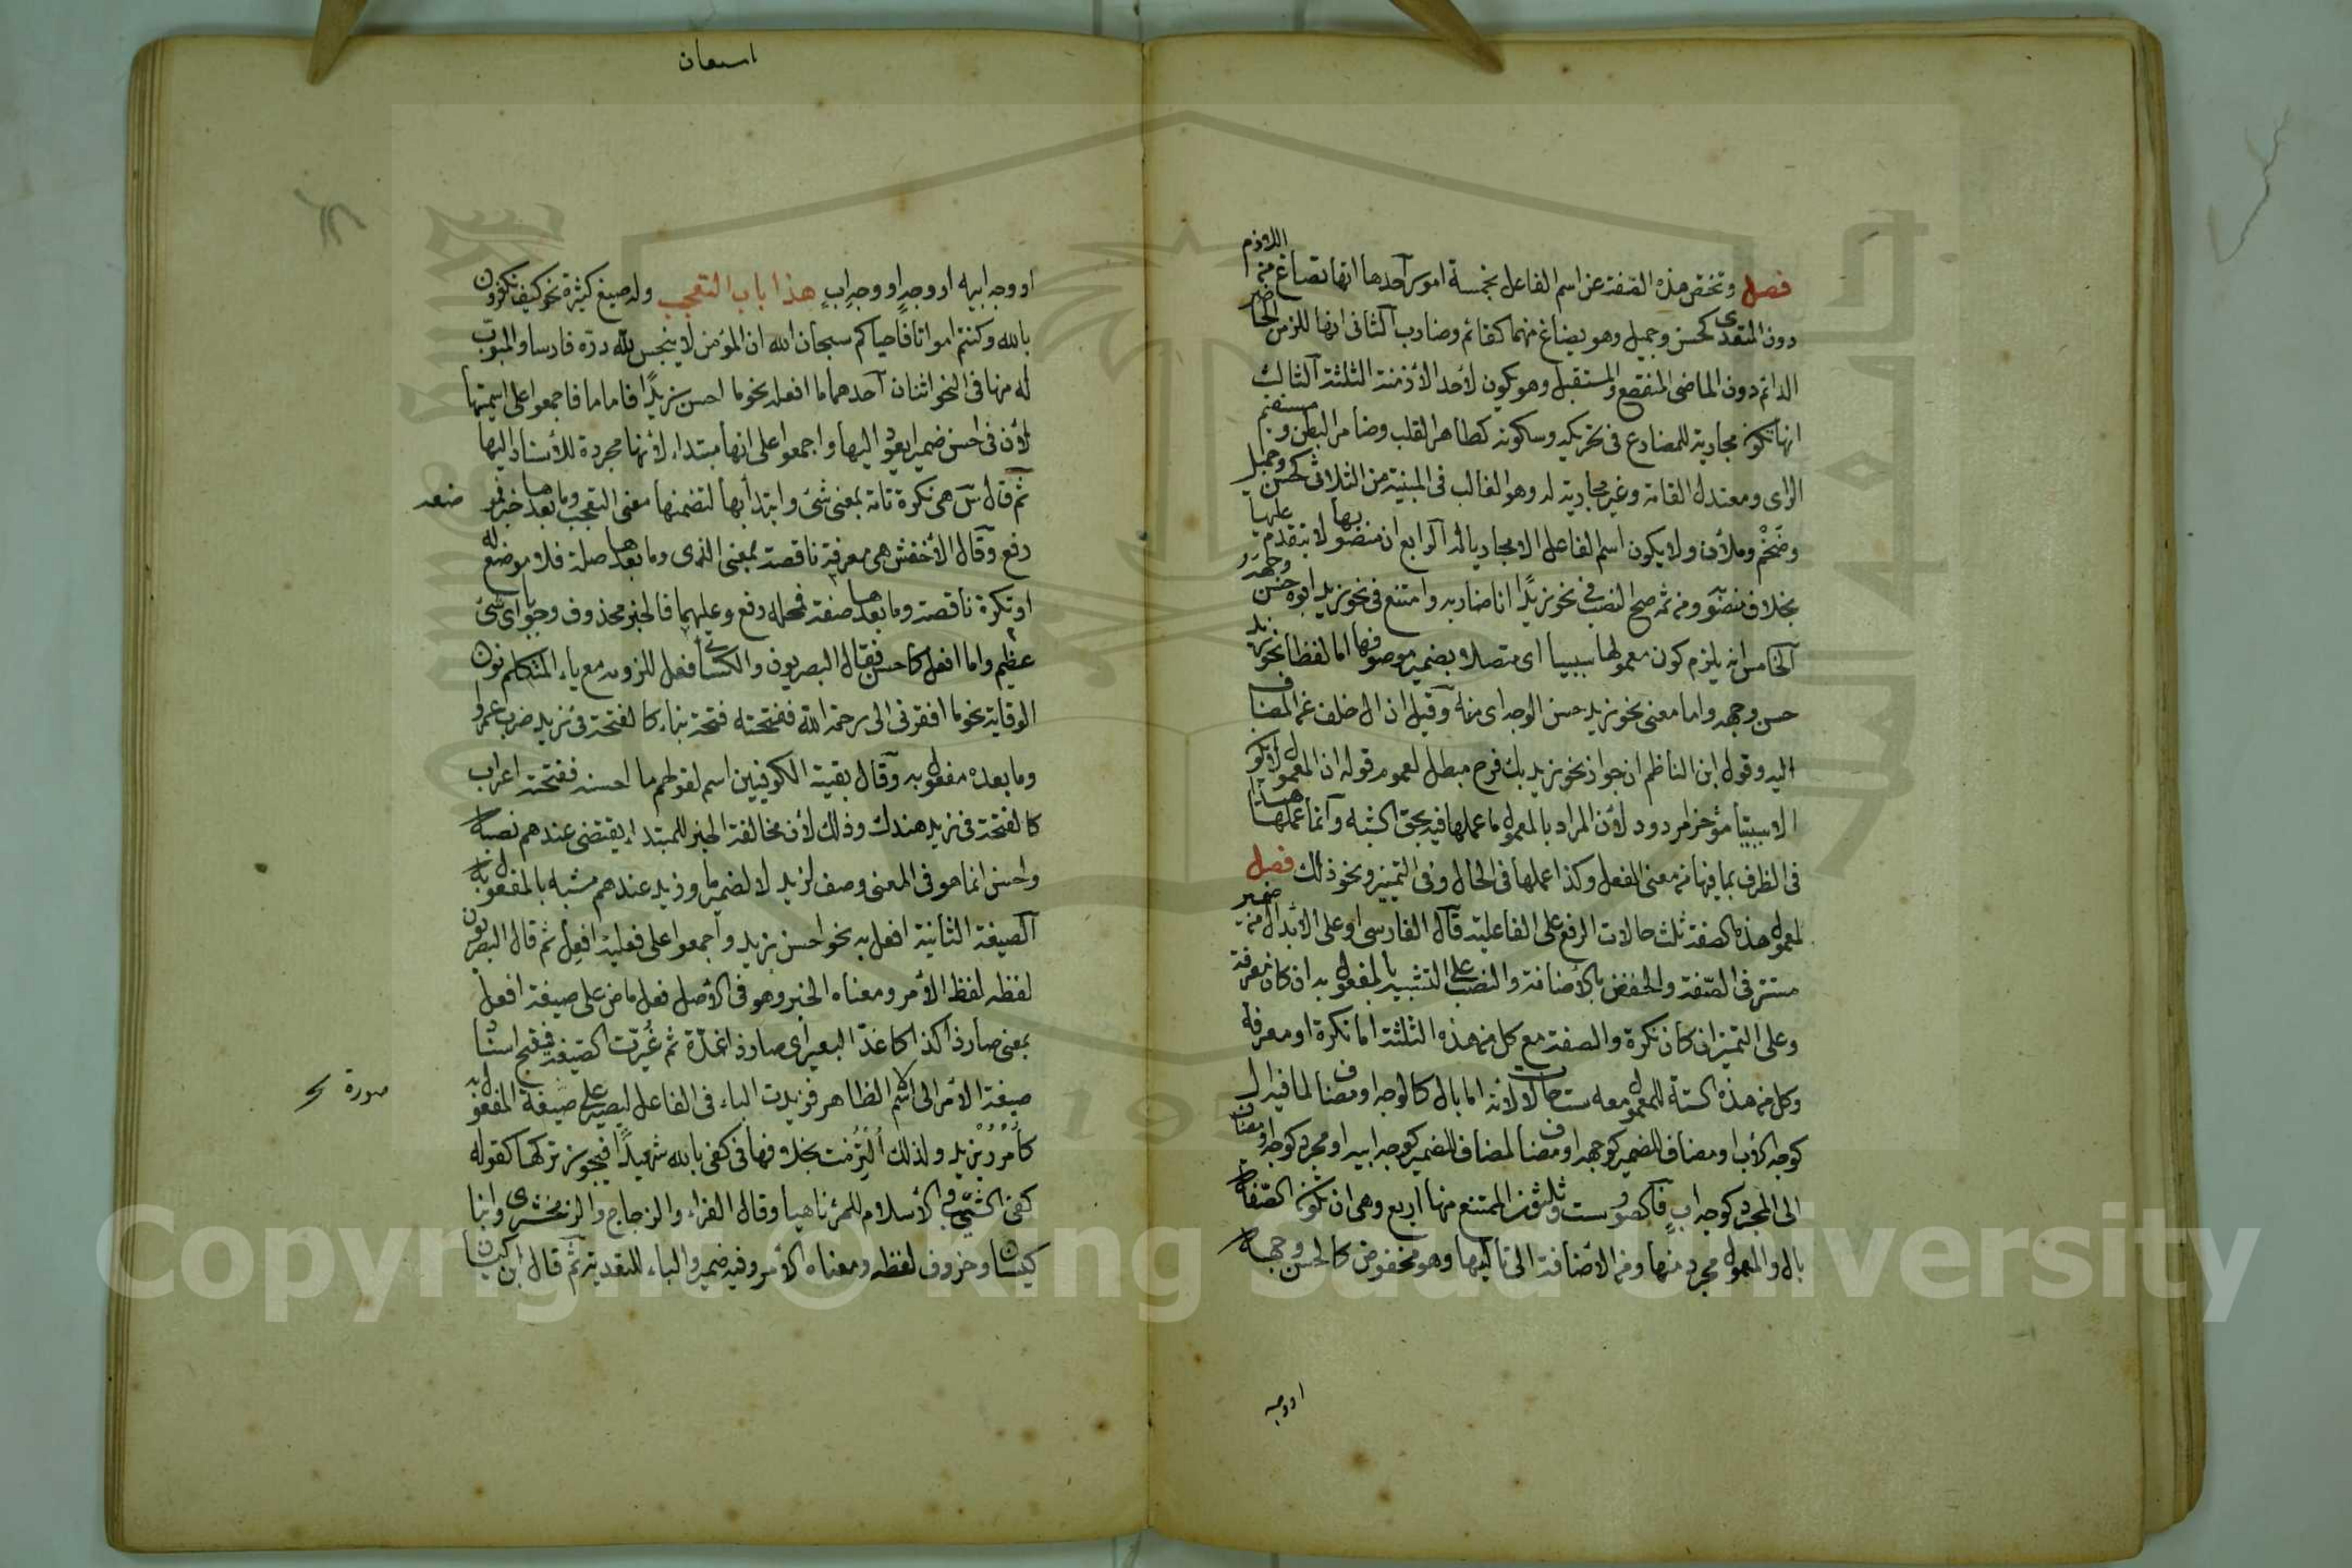 فصل وتختص هذه الصفة عن اسم الفاعل بخمسة امور آحدها انها تصاغ من اللازم
دون المتعدى كحسن وجميل وهو يصاغ منهما كقائم وضارب آلثانى انها للزمن الحاضر
الدائم دون الماضى المنقطع والمستقبل وهو يكون لأحد الأزمنة الثلثة آلثالث
انها تكون مجارية للمضارع فى تحريكه وسكونه كطاهر القلب وضامر البطن ومستقيم
الراى ومعتدل القامة وغير مجارية له وهو الغالب فى المبنية من الثلاثى كحسن وجميل
وضَخْم وملأن ولا يكون اسم الفاعل الا مجاريا له آلرابع ان منصوبها لا يتقدم عليها
بخلاف منصوبه ومن ثم صح النصب فى نحو زيدًا انا ضاربه وامتنع فى نحو زيد ابوه حسن وجهه
آلخامس انه يلزم كون معمولها سببيا اى متصلا بضمير موصوفها اما لفظا نحو زيد
حسن وجهه واما معنى نحو زيد حسن الوجه اى منه وَقيل ان ال خلف عن المضاف
اليه وقول ابن الناظم ان جواز نحو زيد بك فرح مبطل لعموم قوله ان المعمول لا يكون
الا سببيّا مؤخرا مردود لأن المراد بالمعمول ما عملها فيه بحق الشبه وآنما عملها
فى الظرف بما فيها من معنى الفعل وكذا عملها فى الحال وفى التمييز ونحو ذلك فصل
لمعمول هذه الصفة ثلث حالات الرفع على الفاعلية قَال الفارسى او على الابدال من ضمير
مستتر فى الصّفة والخفض بالأضافة والنصب على التشبيه بالمفعول به ان كان معرفة
وعلى التمييز ان كان نكرة والصفة مع كل من هذه الثلثة اما نكرة او معرفة
وكل من هذه الستة للمعمول معه ست حالات لأنه اما بال كالوجه او مضاف لما فيه ال
كوجه الأب او مضاف للضمير كوجهه او مضاف لمضاف للضمير كوجه ابيه او مجرد كوجه او مضاف
الى المجرد كوجه ابٍ فَالصور ست وثلثون الممتنع منها اربع وهى ان تكون الصّفة
بال والمعمول مجرد منها ومن الأضافة الى تاليها وهو مخفوض كالحسن وجهه
او وجه
اسعان
او وجه ابيه او وجهٍ او وجهِ ابٍ هذا باب التعجب وله صيغ كثيرة نحو كيف تكفرون
بالله وكنتم امواتا فأحياكم سبحان الله ان المؤمن لا ينجس لله درّه فارسا والمبوّب
له منها فى النحو اثنان آحدهما ما افعله نحو ما احسن زيدًا فاما ما فاجمعوا على اسميتها
لأن فى احسن ضميرا يعود اليها واجمعوا على انها مبتداء لأنها مجردة للأسناد اليها
ثم قال سَ هى نكرة تامة بمعنى شئ وابتدأ بها لتضمنها معنى التعجب وما بعدها خبر فموضعه
رفع وقَال الأخفش هى معرفة ناقصة بمعنى الذى وما بعدها صلة فلا موضع له
او نكرة ناقصة وما بعدها صفة فمحله رفع وعليهما فالخبر محذوف وجوبا اى شئ
عظيم واما افعل كاحسن فقال البصريون والكسائى فعل للزومه مع ياء المتكلم نون
الوقاية نحو ما افقرنى الى رحمة الله ففتحته فتحة بناء كالفتحة فى زيد ضرب عمروا
وما بعده مفعول به وَقال بقية الكوفيين اسم لقولهم ما احسنه ففتحته اعراب
كالفتحة فى زيد عندك وذلك لأن مخالفة الخبر للمبتداء يقتضى عندهم نصبه
واحسن انما هو فى المعنى وصف لزيد لا لضمير ما وزيد عندهم مشبه بالمفعول به
آلصيغة الثانية افعل به نحو احسن بزيد واجمعوا على فعلية افعِل ثم قال البصريون
لفظه لفظ الأمر ومعناه الخبر وهو فى الأصل فعل ماض على صيغة افعل
بمعنى صار ذا كذا كاغدّ البعير اى صار ذا غدّة ثم غُيّرت الصّيغة فقبح اسناد
صيغة الأمر الى الاسم الظاهر فزيدت الباء فى الفاعل ليصير على صيغة المفعول به
كأُمْرُرْ بزيد ولذلك اُلتزمت بخلافها فى كفى بالله شهيدًا فيجوز تركها كقوله
كفى الشيب والأسلام للمرء ناهيا وقال الفراء والزجاج والزمخشرى وابنا
كيسان وخروف لفظه ومعناه الأمر وفيه ضمير والباء للتعدية ثم قال ابن كيسان
صورة